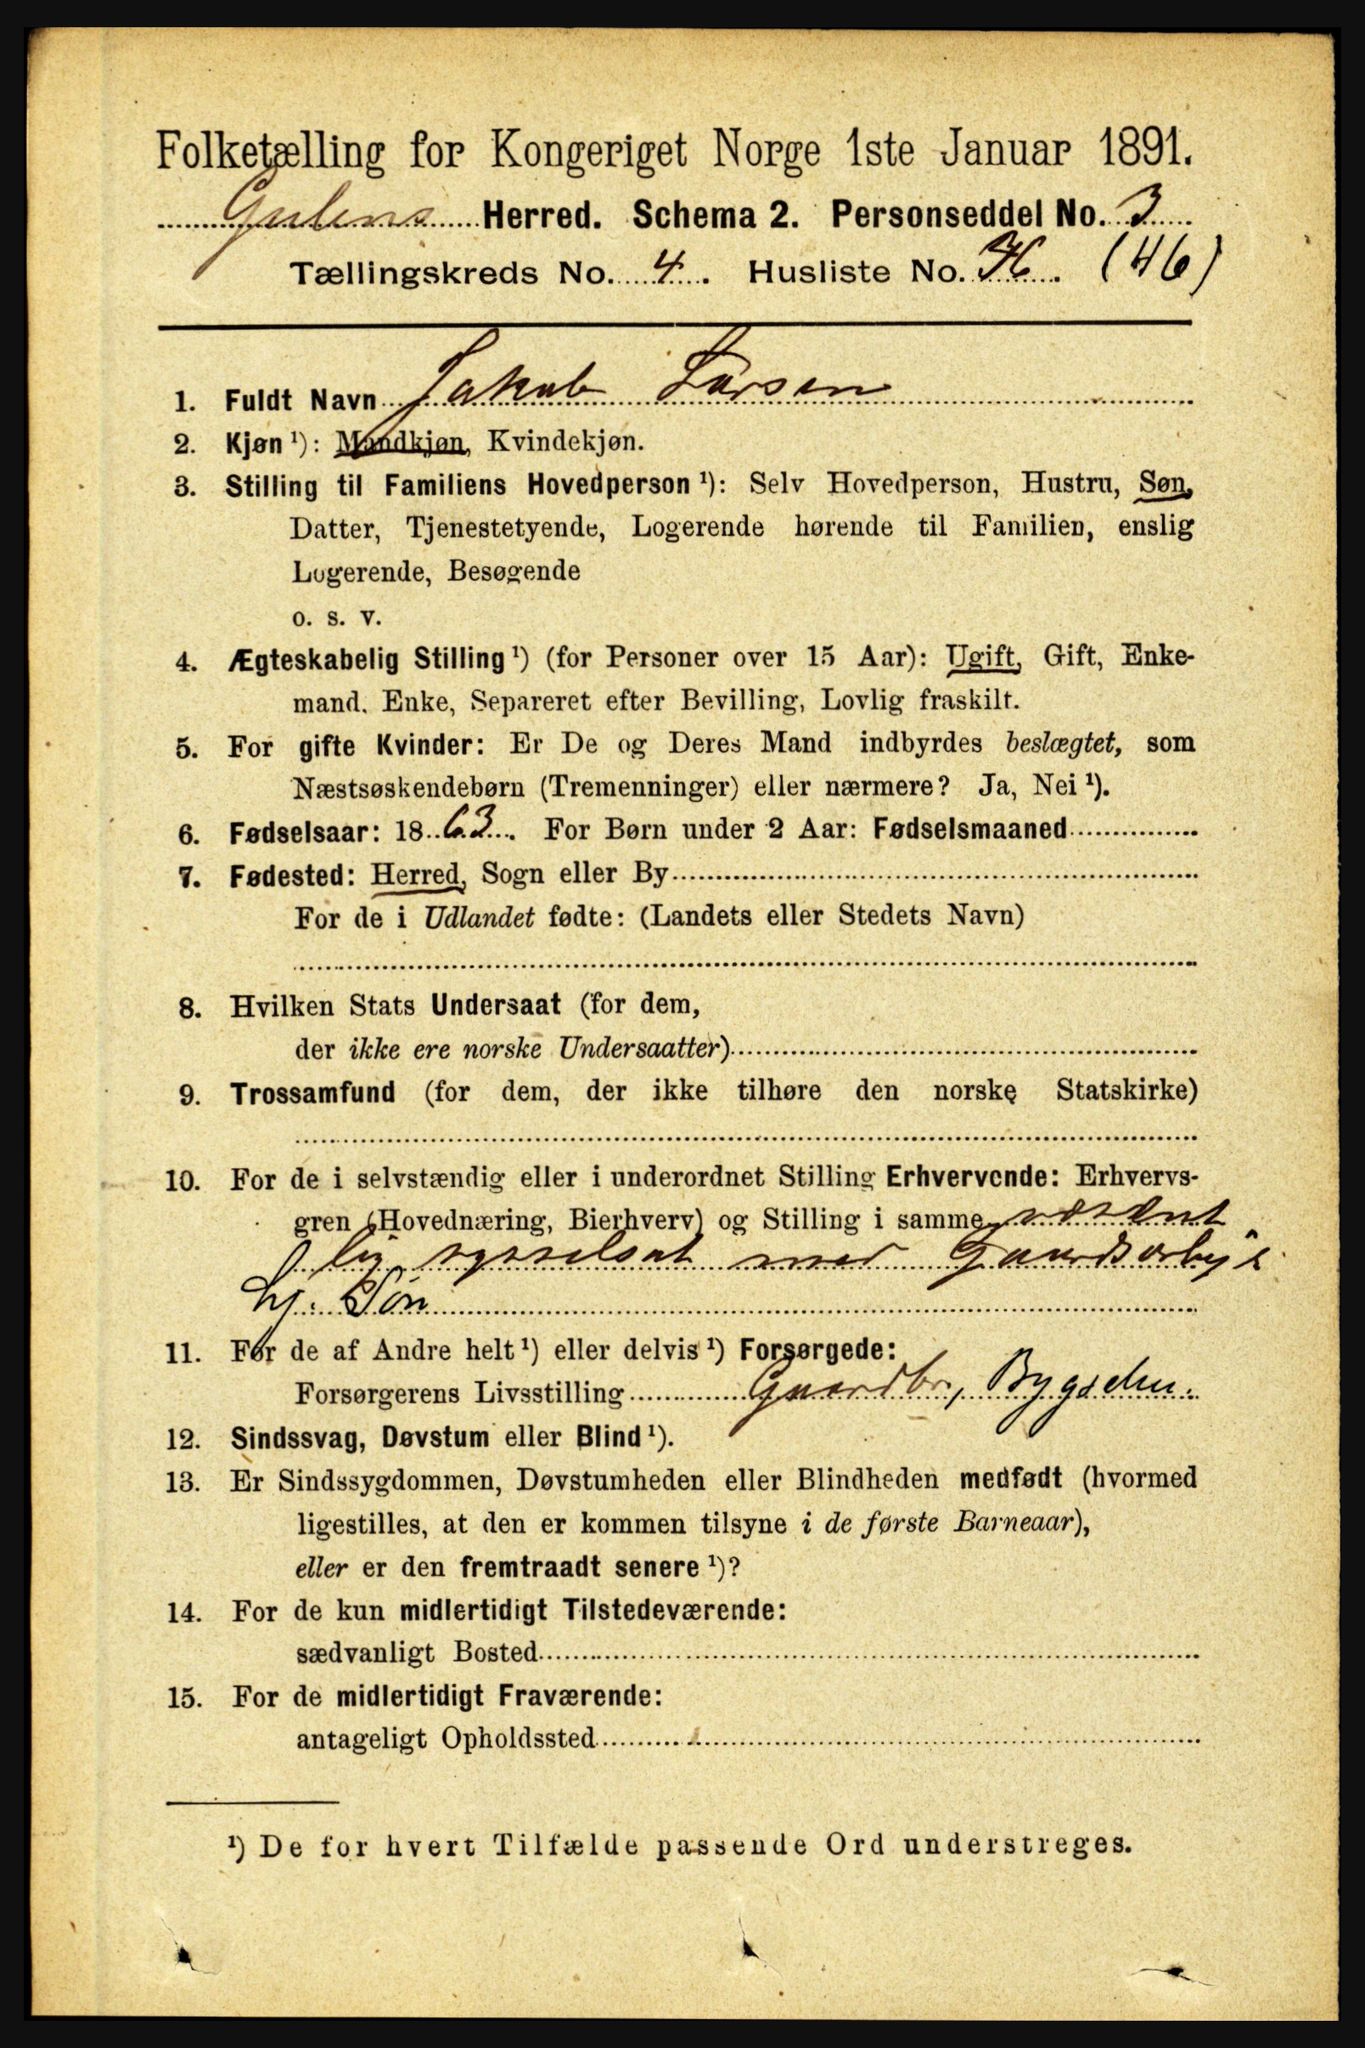 Folketælling for Kongeriget Norge 1ste Januar 1891.
Gulens Herred. Schema 2. Personseddel No. 3
Tællingskreds No. 4. Husliste No. (46)
1. Fuldt Navn Jakob Larsen
2. Kjøn ¹): Mandkjøn, Kvindekjøn.
3. Stilling til Familiens Hovedperson ¹): Selv Hovedperson, Hustru, Søn,
Datter, Tjenestetyende, Logerende hørende til Familien, enslig
Logerende, Besøgende
o. s. v.
4. Ægteskabelig Stilling ¹) (for Personer over 15 Aar): Ugift, Gift, Enke-
mand, Enke, Separeret efter Bevilling, Lovlig fraskilt.
5. For gifte Kvinder: Er De og Deres Mand indbyrdes beslægtet, som
Næstsøskendebørn (Tremenninger) eller nærmere? Ja, Nei ¹).
6. Fødselsaar: 1863. For Børn under 2 Aar: Fødselsmaaned
7. Fødested: Herred, Sogn eller By
For de i Udlandet fødte: (Landets eller Stedets Navn)
8. Hvilken Stats Undersaat (for dem,
der ikke ere norske Undersaatter)
9. Trossamfund (for dem, der ikke tilhøre den norske Statskirke)
10. For de i selvstændig eller i underordnet Stilling Erhvervende: Erhvervs-
gren (Hovednæring, Bierhverv) og Stilling i samme væsent
lig sysselsat med Gaardsarb
hj. Søn
11. For de af Andre helt ¹) eller delvis ¹) Forsørgede:
Forsørgerens Livsstilling Gaardbr,
12. Sindssvag, Døvstum eller Blind ¹).
13. Er Sindssygdommen, Døvstumheden eller Blindheden medfødt (hvormed
ligestilles, at den er kommen tilsyne i de første Barneaar),
eller er den fremtraadt senere ¹)?
14. For de kun midlertidigt Tilstedeværende:
sædvanligt Bosted
15. For de midlertidigt Fraværende:
antageligt Opholdssted
¹) De for hvert Tilfælde passende Ord understreges.